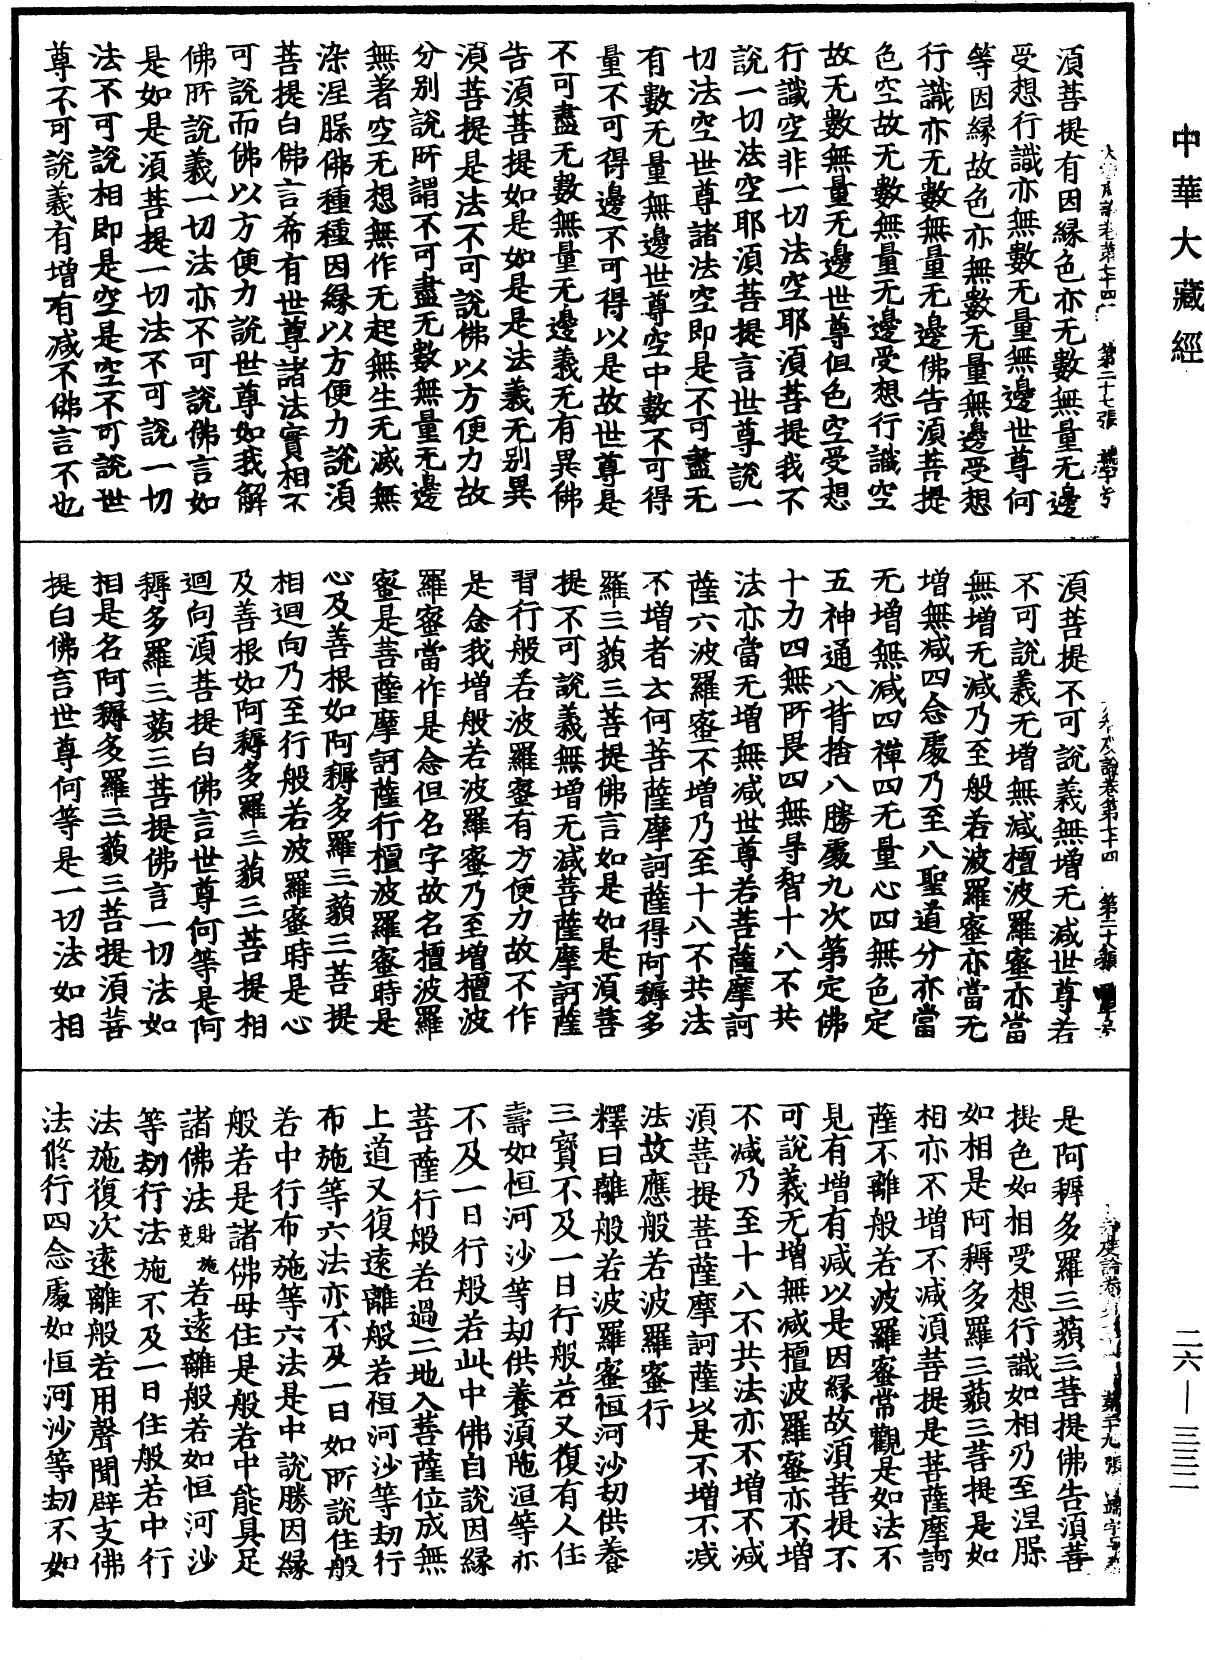 中華大藏經
湏菩提有因縁色亦无數無量无邊
受想行識亦無數无量無邊世尊何
等因縁故色亦無數无量無邊受想
行識亦无數無量无邊佛告湏菩提
色空故无數無量无邊受想行識空
故无數無量无邊世尊但色空受想
行識空非一切法空耶湏菩提我不
說一切法空耶湏菩提言世尊說一
切法空世尊諸法空即是不可盡无
有數无量無邊世尊空中數不可得
量不可得邊不可得以是故世尊是
不可盡无數無量无邊義无有異佛
告湏菩提如是如是是法義无别異
湏菩提是法不可說佛以方便力故
分别說所謂不可盡无數無量无邊
無著空无想無作无起無生无滅無
染涅槃佛種種因縁以方便力說湏
菩提白佛言希有世尊諸法實相不
可說而佛以方便力說世尊如我解
佛所說義一切法亦不可說佛言如
是如是湏菩提一切法不可說一切
法不可說相即是空是空不可說世
尊不可說義有增有減不佛言不也
湏菩提不可說義無增无減世尊若
不可說義无增無減檀波羅蜜亦當
無增无減乃至般若波羅蜜亦當无
增無減四念處乃至八聖道分亦當
无增無減四禪四无量心四無色定
五神通八背捨八勝處九次第定佛
十力四無所畏四無㝵智十八不共
法亦當无增無減世尊若菩薩摩訶
薩六波羅蜜不增乃至十八不共法
不增者云何菩薩摩訶薩得阿耨多
羅三藐三菩提佛言如是如是湏菩
提不可說義無增无減菩薩摩訶薩
習行般若波羅蜜有方便力故不作
是念我增般若波羅蜜乃至增檀波
羅蜜當作是念但名字故名檀波羅
蜜是菩薩摩訶薩行檀波羅蜜時是
心及善根如阿耨多羅三藐三菩提
相迴向乃至行般若波羅蜜時是心
及善根如阿耨多羅三藐三菩提相
迴向湏菩提白佛言世尊何等是阿
耨多羅三藐三菩提佛言一切法如
相是名阿耨多羅三藐三菩提湏菩
提白佛言世尊何等是一切法如相
是阿耨多羅三藐三菩提佛告湏菩
提色如相受想行識如相乃至涅槃
如相是阿耨多羅三藐三菩提是如
相亦不增不減湏菩提是菩薩摩訶
薩不離般若波羅蜜常觀是如法不
見有增有減以是因縁故湏菩提不
可說義无增無減檀波羅蜜亦不增
不減乃至十八不共法亦不增不減
湏菩提菩薩摩訶薩以是不增不減
法故應般若波羅蜜行
釋曰離般若波羅蜜恒河沙劫供養
三寳不及一日行般若又復有人住
壽如恒河沙等劫供養湏陁洹等亦
不及一日行般若此中佛自說因縁
菩薩行般若過二地入菩薩位成無
上道又復遠離般若恒河沙等劫行
布施等六法亦不及一日如所說住般
若中行布施等六法是中說勝因縁
般若是諸佛母住是般若中能具足
諸佛法財施竟若遠離般若如恒河沙
等劫行法施不及一日住般若中行
法施復次遠離般若用聲聞辟支佛
法修行四念處如恒河沙等劫不如
二六—三三二